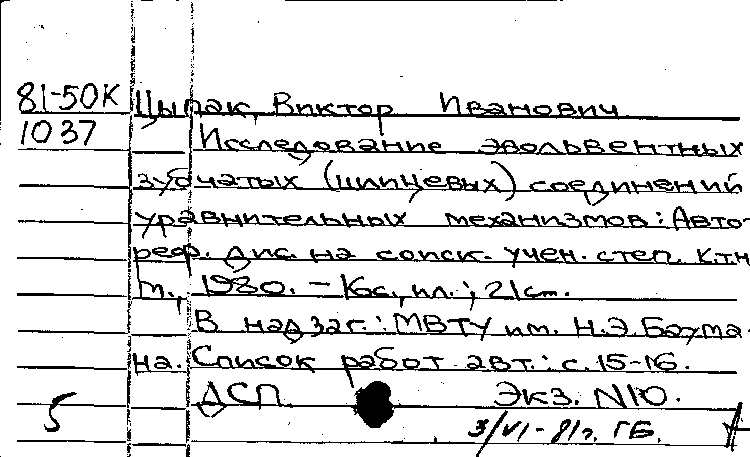 81-50К Цыпак, Виктор Иванович
1037 Исследование эвольвентных
зубчатых (шлицевых) соединений
уравнительных механизмов: Авто-
реф. дис. на соиск. учен. степ. к.т.н
М., 1980. - Ic., ил.; 21 см.
В надзаг.: МВТУ им. Н.Э. Баума-
на. Список работ авт.: с. 15-16.
ДСП. Экз. N10.
5 3/VI-81г. ГБ.